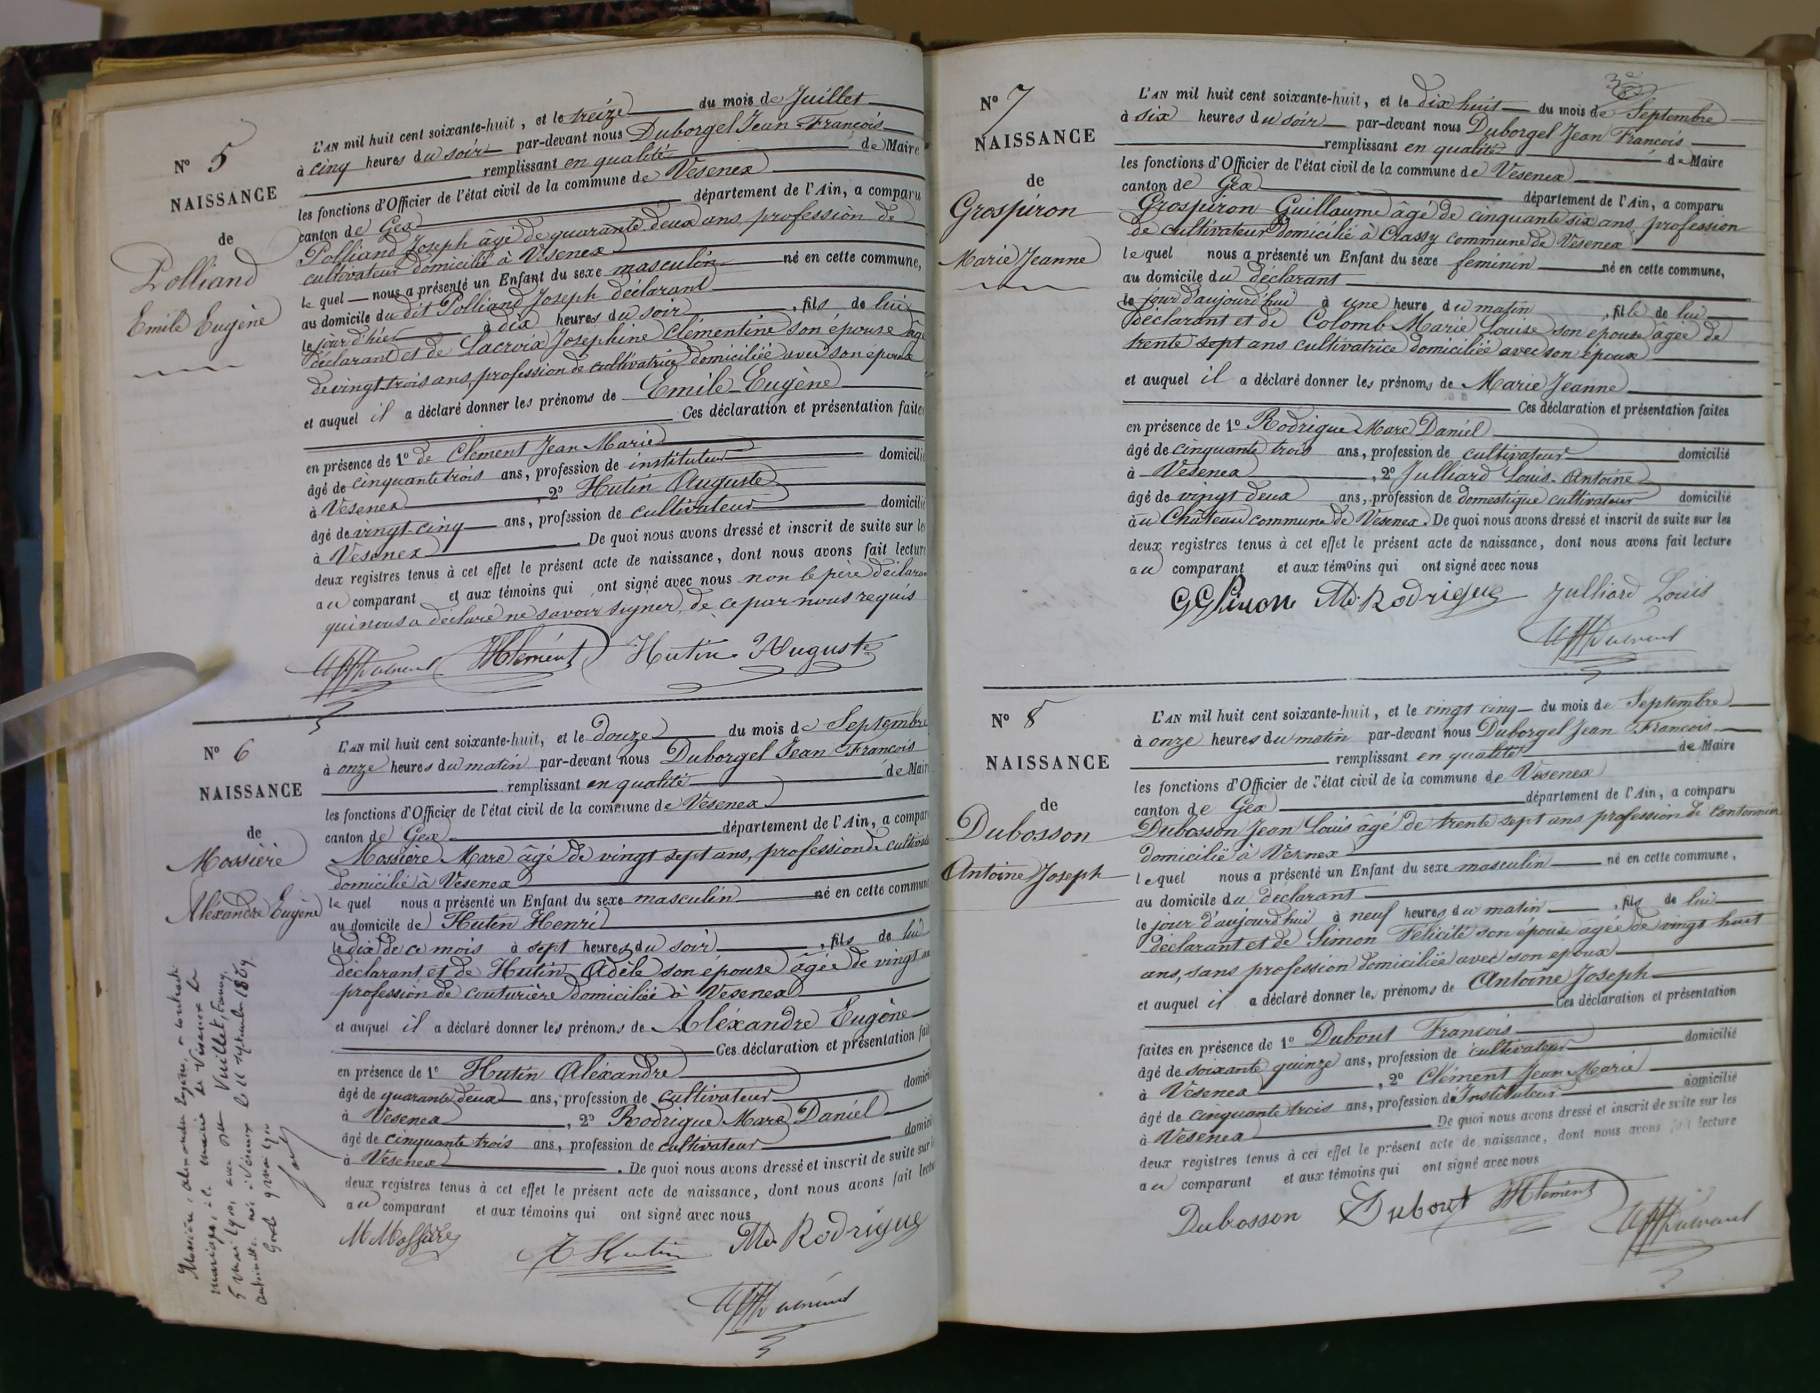 N° 5
NAISSANCE
de
Polliand
Emile Eugène
L'AN mil huit cent soixante-huit, et le treize du mois de Juillet
à cinq heures du soir par-devant nous Duborgel Jean François
remplissant en qualité de Maire
les fonctions d'Officier de l'état civil de la commune de Vesenex
canton de Gex département de l'Ain, a comparu
Polliand Joseph âgé de quarante deux ans, profession de
cultivateur domicilié à Vesenex
le quel nous a présenté un Enfant du sexe masculin né en cette commune,
au domicile du dit Polliand Joseph déclarant
le jour d'hier à dix heures du soir, fils de lui
déclarant et de Lacroix Joséphine Clémentine son épouse âgé
de vingt trois ans, profession de cultivatrice domiciliée avec son époux
et auquel il a déclaré donner les prénoms de Emile Eugène
Ces déclaration et présentation faites
en présence de 1° de Clément Jean Marie
âgé de cinquante trois ans, profession de instituteur domicilié
à Vesenex, 2° Hutin Auguste
âgé de vingt-cinq ans, profession de cultivateur domicilié
à Vesenex. De quoi nous avons dressé et inscrit de suite sur les
deux registres tenus à cet effet le présent acte de naissance, dont nous avons fait lecture
au comparant et aux témoins qui ont signé avec nous non le père déclarant
qui nous a déclaré ne savoir signer, de ce par nous requis
JMClément Hutin Auguste
N° 6
NAISSANCE
de
Mossière
Alexandre Eugène
L'AN mil huit cent soixante-huit, et le douze du mois de Septembre
à onze heures du matin par-devant nous Duborgel Jean François
remplissant en qualité de Maire
les fonctions d'Officier de l'état civil de la commune de Vesenex
canton de Gex département de l'Ain, a comparu
Mossière Marc âgé de vingt sept ans, profession de cultivateur
domicilié à Vesenex
le quel nous a présenté un Enfant du sexe masculin né en cette commune
au domicile de Hutin Henri
le dix de ce mois à sept heures du soir, fils de lui
déclarant et de Hutin Adèle son épouse âgée de vingt ans
profession de couturière domiciliée à Vesenex
et auquel il a déclaré donner les prénoms de Aléxandre Eugène
Ces déclaration et présentation faites
en présence de 1° Hutin Aléxandre
âgé de quarante deux ans, profession de cultivateur domicilié
à Vesenex, 2° Rodrigue Marc Daniel
âgé de cinquante trois ans, profession de cultivateur domicilié
à Vesenex. De quoi nous avons dressé et inscrit de suite sur les
deux registres tenus à cet effet le présent acte de naissance, dont nous avons fait lecture
au comparant et aux témoins qui ont signé avec nous
M Mossière A Hutin Md Rodrigue
Mossière, Alexandre Eugène, a contracté
mariage, à la mairie de Vesenex le
5 mai 1900, avec Vuillet, Fanny
Antoinette, née à Vesenex le 11 septembre 1869
N° 7
NAISSANCE
de
Grospiron
Marie Jeanne
L'AN mil huit cent soixante-huit, et le dix huit du mois de Septembre
à six heures du soir par-devant nous Duborgel Jean François
remplissant en qualité de Maire
les fonctions d'Officier de l'état civil de la commune de Vesenex
canton de Gex département de l'Ain, a comparu
Grospiron Guillaume âgé de cinquante six ans, profession
de cultivateur domicilié à Crassy commune de Vesenex
le quel nous a présenté un Enfant du sexe feminin né en cette commune,
au domicile du déclarant
le jour d'aujourd'hui à une heure du matin, fille de lui
déclarant et de Colomb Marie Louise son épouse âgée de
trente sept ans cultivatrice domiciliée avec son époux
et auquel il a déclaré donner les prénoms de Marie Jeanne
Ces déclaration et présentation faites
en présence de 1° Rodrigue Marc Daniel
âgé de cinquante trois ans, profession de cultivateur domicilié
à Vesenex, 2° Julliard Louis Antoine
âgé de vingt deux ans, profession de domestique cultivateur domicilié
au Château commune de Vesenex. De quoi nous avons dressé et inscrit de suite sur les
deux registres tenus à cet effet le présent acte de naissance, dont nous avons fait lecture
au comparant et aux témoins qui ont signé avec nous
Md Rodrigue Julliard Louis
N° 8
NAISSANCE
de
Dubosson
Antoine Joseph
L'AN mil huit cent soixante-huit, et le vingt cinq du mois de Septembre
à onze heures du matin par-devant nous Duborgel Jean François
remplissant en qualité de Maire
les fonctions d'Officier de l'état civil de la commune de Vesenex
canton de Gex département de l'Ain, a comparu
Dubosson Jean Louis âgé de trente sept ans profession de Cantonnier
domicilié à Vesnex
le quel nous a présenté un Enfant du sexe masculin né en cette commune,
au domicile du déclarant
le jour d'aujourd'hui à neuf heures du matin, fils de lui
déclarant et de Simon Félicité son épouse âgée de vingt huit
ans, sans profession domiciliée avec son époux
et auquel il a déclaré donner les prénoms de Antoine Joseph
Ces déclaration et présentation
faites en présence de 1° Dubout François domicilié
âgé de soixante quinze ans, profession de cultivateur
à Vesenex, 2° Clément Jean Marie
âgé de cinquante trois ans, profession d'Instituteur domicilié
à Vesenex De quoi nous avons dressé et inscrit de suite sur les
deux registres tenus à cet effet le présent acte de naissance, dont nous avons fait lecture
au comparant et aux témoins qui ont signé avec nous
Dubosson Dubout JMClément